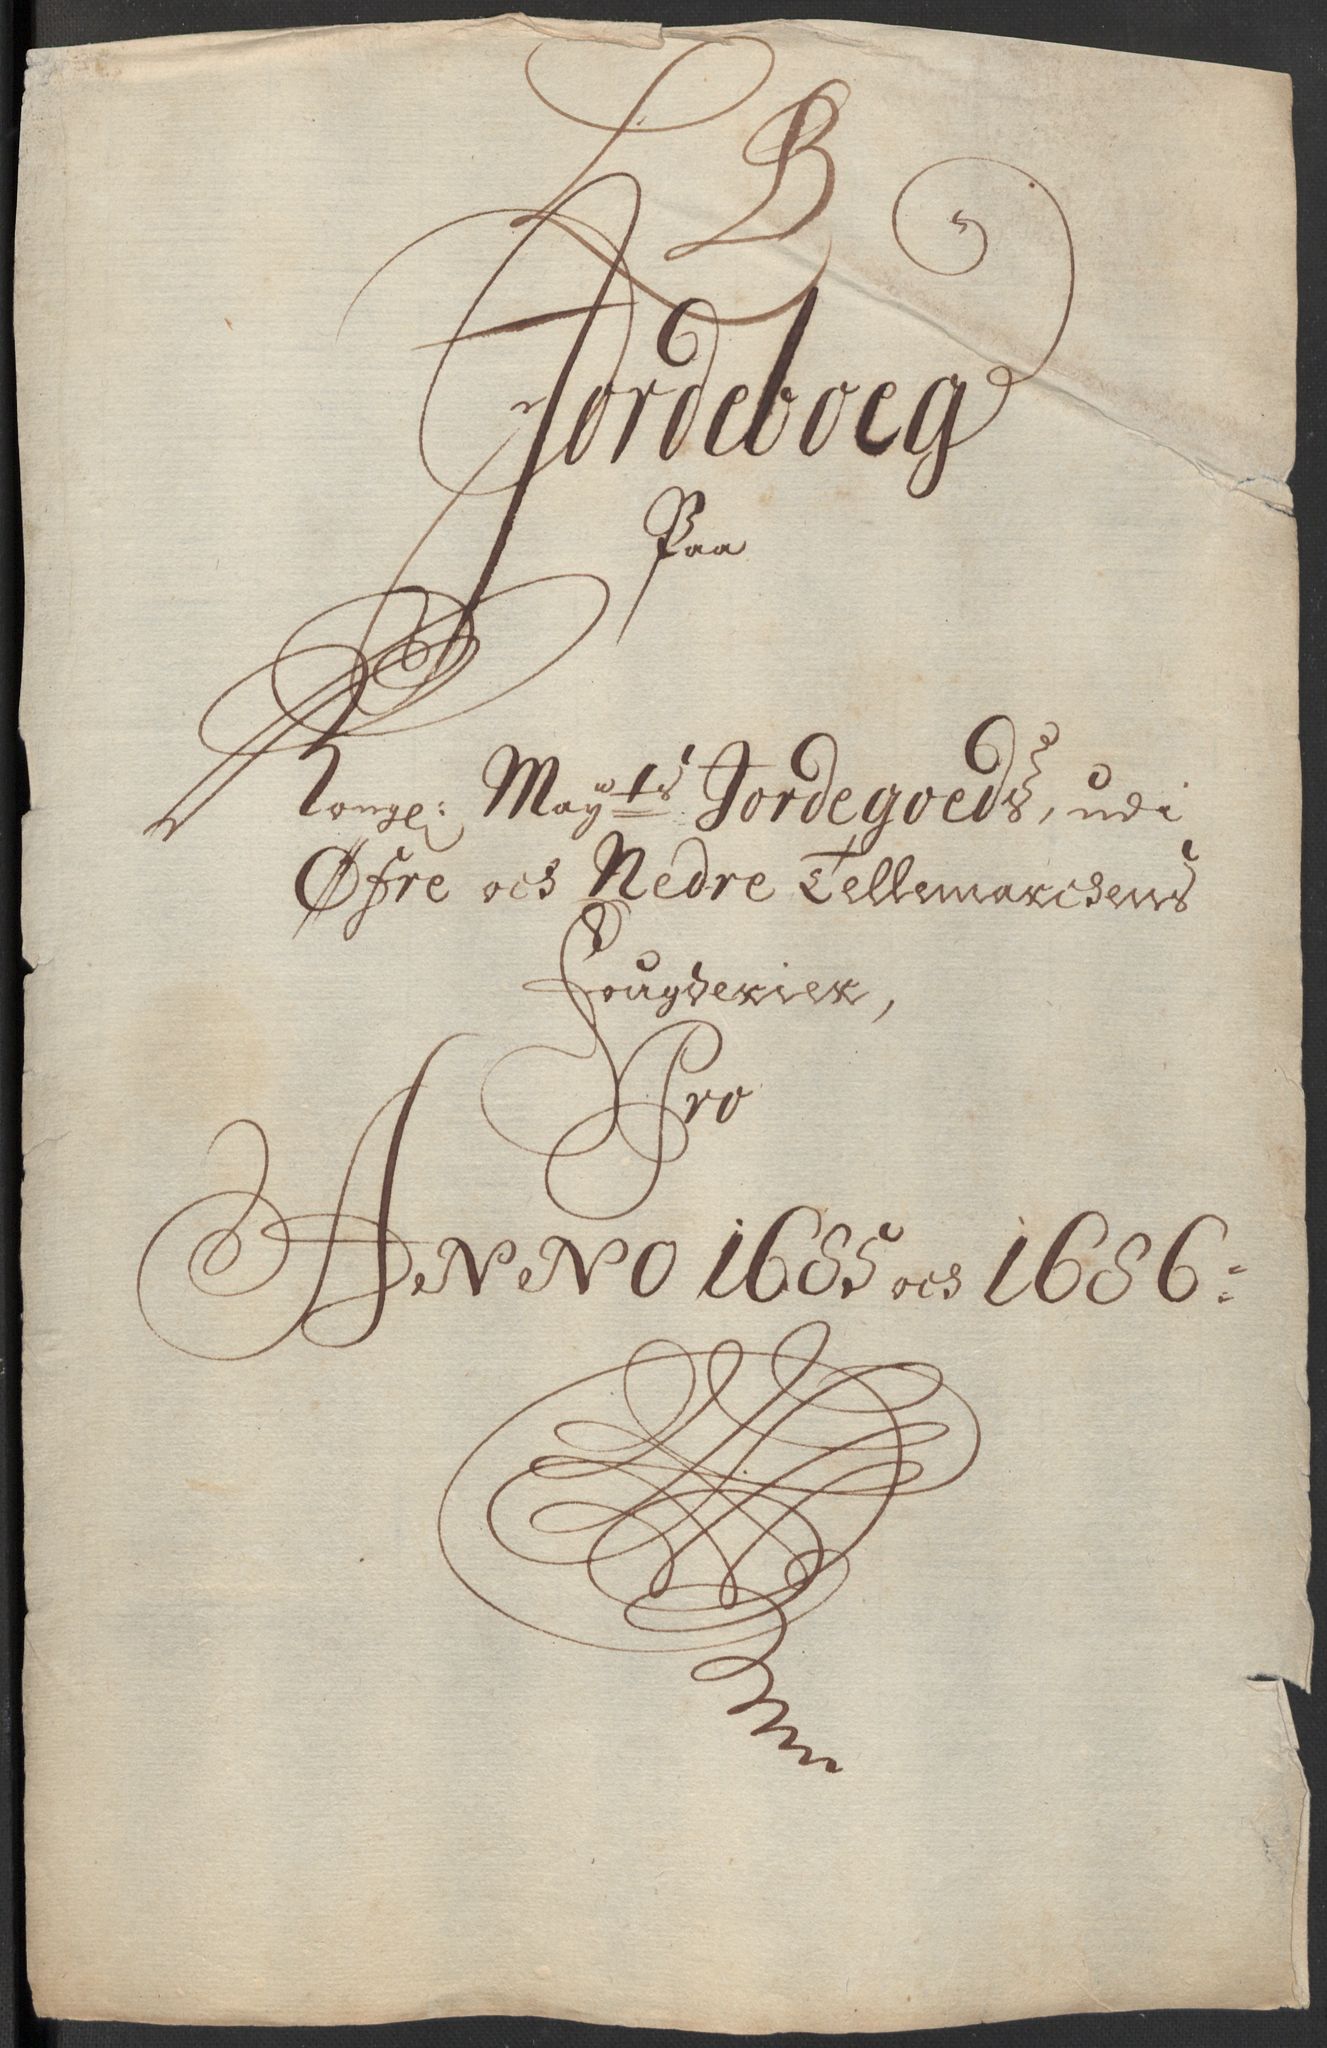 L B
Jordeboeg
Paa
Kongl: Mayts Jordegoeds, udi
Øfre och Nedre Tellemarchens
Fougderier,
Pro
ANNO 1685 och 1686: